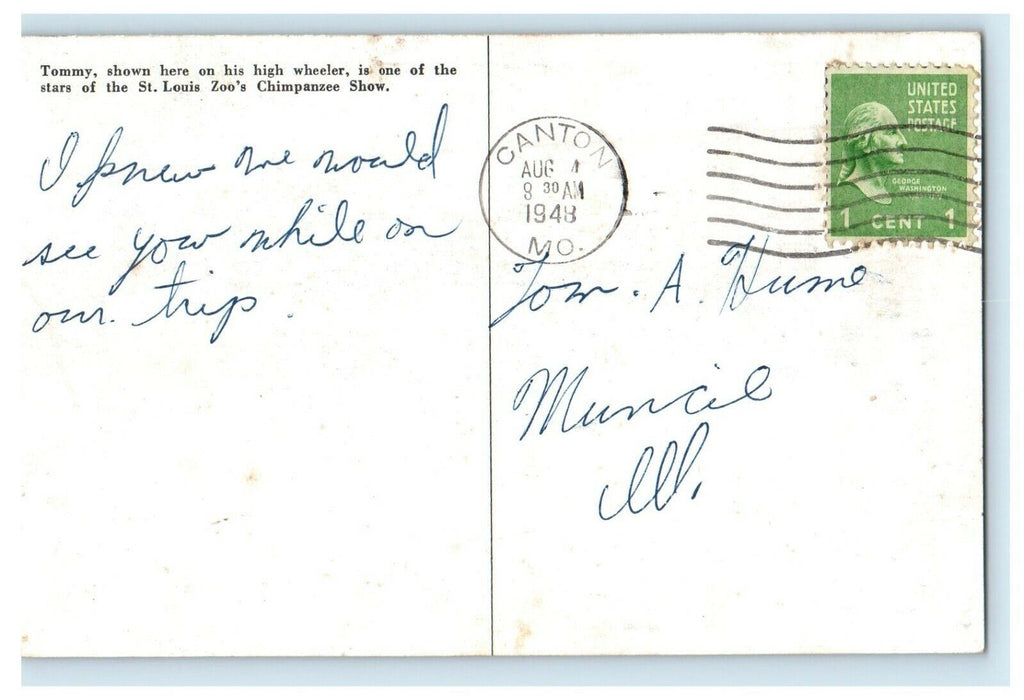 Tommy, shown here on his high wheeler, is one of the
stars of the St. Louis Zoo's Chimpanzee Show.
I knew we would
see you while on
our trip.
CANTON
AUG 4
8 30 AM
1948
MO.
UNITED
STATES
POSTAGE
GEORGE
WASHINGTON
1 CENT 1
Tom. A. Hume
Muncie
Ill.